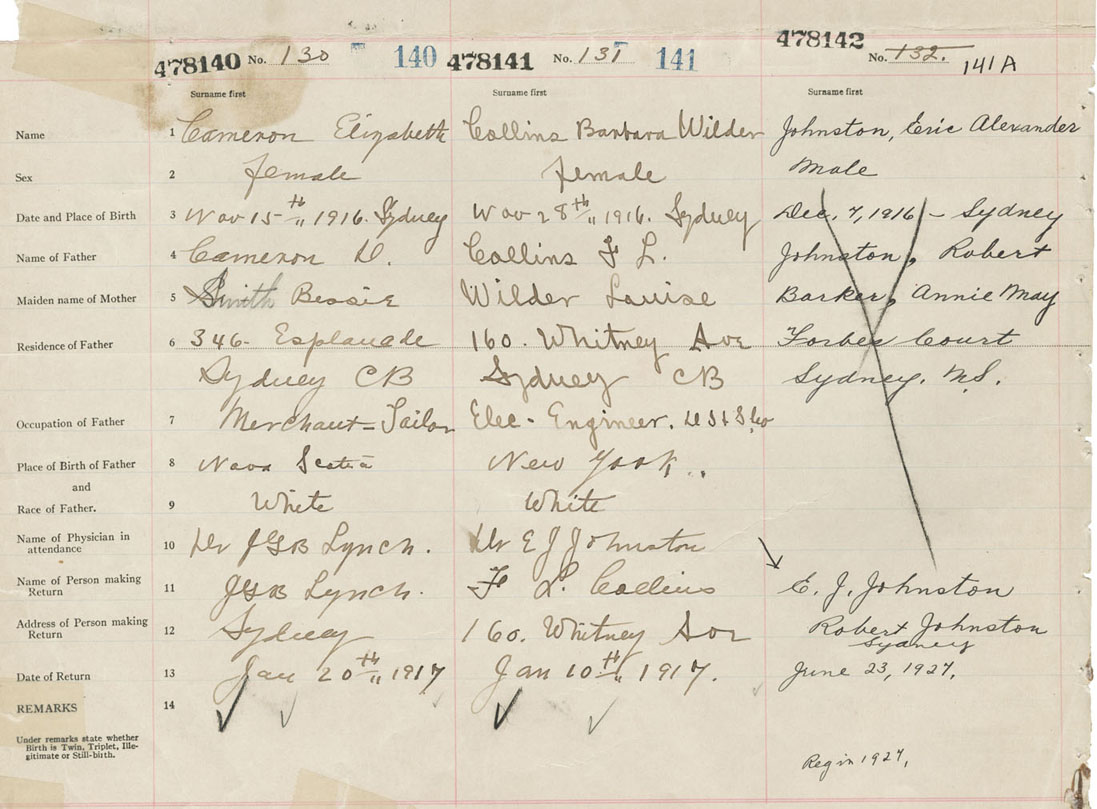 478140 No. 130 140 478141 No. 131 141 478142 No. 132. 141A
Surname first Surname first Surname first
Name 1 Cameron Elizabeth Collins Barbara Wilder Johnston, Eric Alexander
Sex 2 female female Male
Date and Place of Birth 3 Nov 15th 1916. Sydney Nov 28th 1916. Sydney Dec. 7, 1916 - Sydney
Name of Father 4 Cameron D. Collins F L. Johnston, Robert
Maiden name of Mother 5 Smith Bessie Wilder Louise Barker, Annie May
Residence of Father 6 346- Esplanade 160. Whitney Ave Forbes Court
Sydney CB Sydney CB Sydney. N.S.
Occupation of Father 7 Merchant-Tailor Elec- Engineer. D I & S Co
Place of Birth of Father 8 Nova Scotia New York.
and
Race of Father. 9 White White
Name of Physician in
attendance 10 Dr JGB Lynch. Dr E J Johnston
Name of Person making
Return 11 JGB Lynch. F L. Collins E. J. Johnston
Address of Person making
Return 12 Sydney 160. Whitney Ave Robert Johnston
Sydney
Date of Return 13 Jan 20th 1917 Jan 10th 1917. June 23, 1927.
REMARKS 14
Under remarks state whether
Birth is Twin, Triplet, Ille-
gitimate or Still-birth.
Reg in 1927.